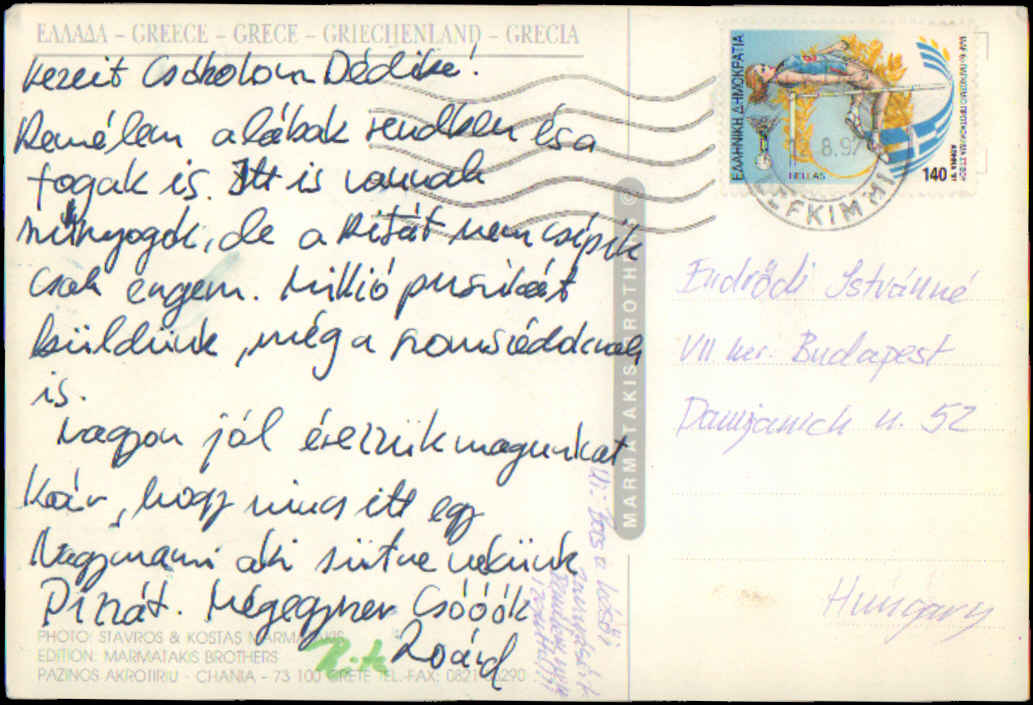 ΕΛΛΑΔΑ – GREECE – GRECE – GRIECHENLAND – GRECIA
Kezeit Csókolom Dédike!
Remélem a lábak rendben és a
fogak is. Itt is vannak
szúnyogok, de a Ritát nem csípik
csak engem. Millió puszikát
küldünk, még a szomszédoknak
is.
Nagyon jól érezzük magunkat
Kár, hogy nincs itt egy
Nagymami aki sütne nekünk
Pizzát. Mégegyszer Csóóók
Zoárd
Rita
PHOTO: STAVROS & KOSTAS MARMATAKIS
EDITION: MARMATAKIS BROTHERS
PAZINOS AKROTIRIU - CHANIA - 73 100 CRETE TEL.-FAX: 0821
MARMATAKIS BROTHERS ©
Ui: Bocs a késői
ΕΛΛΗΝΙΚΗ ΔΗΜΟΚΡΑΤΙΑ
HELLAS
140
8.97
LEFKIMMI
Endrődi Istvánné
VII ker. Budapest
Damjanich u. 52
Hungary